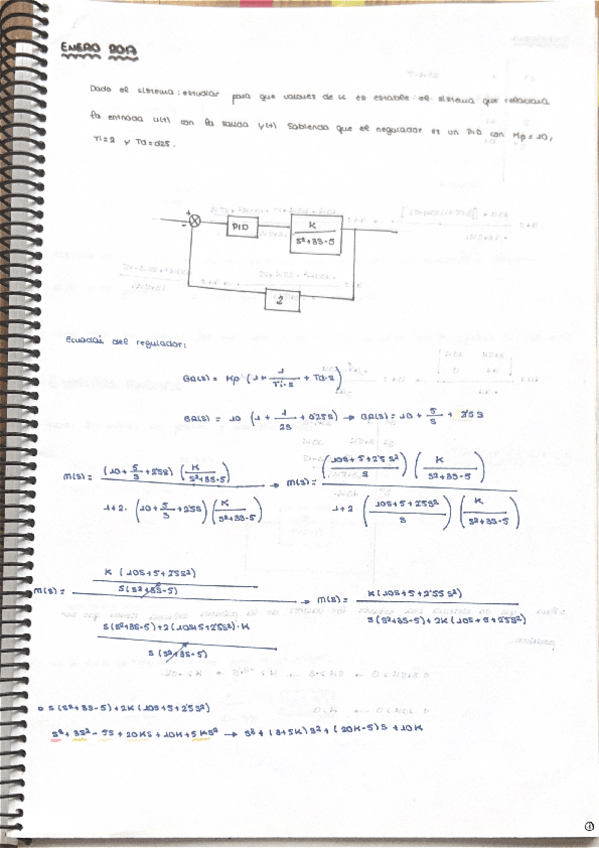 ENERO 2017
Dado el sistema: estudiar para que valores de K es estable el sistema que relaciona
la entrada u(t) con la salida y(t) sabiendo que el regulador es un PID con Kp = 10,
Ti = 2 y Td = 0'25.
+
-
PID
K
s²+3s-5
2
Ecuación del regulador:
GR(s) = Kp (1 + 1/(Ti·s) + Td·s)
GR(s) = 10 (1 + 1/2s + 0'25s) → GR(s) = 10 + 5/s + 2'5s
M(s) = (10 + 5/s + 2'5s) (K/(s²+3s-5)) / 1+2·(10 + 5/s + 2'5s) (K/(s²+3s-5)) → M(s) = ((10s+5+2'5s²)/s) (K/(s²+3s-5)) / 1+2 ((10s+5+2'5s²)/s) (K/(s²+3s-5))
M(s) = K(10s+5+2'5s²) / s(s²+3s-5) / s(s²+3s-5)+2(10s+5+2'5s²)·K / s(s²+3s-5) → M(s) = K(10s+5+2'5s²) / s(s²+3s-5) + 2K(10s+5+2'5s²)
s(s²+3s-5)+2K(10s+5+2'5s²)
s³+3s²-5s+20Ks+10K+5Ks² → s³+(3+5K)s²+(20K-5)s+10K
1